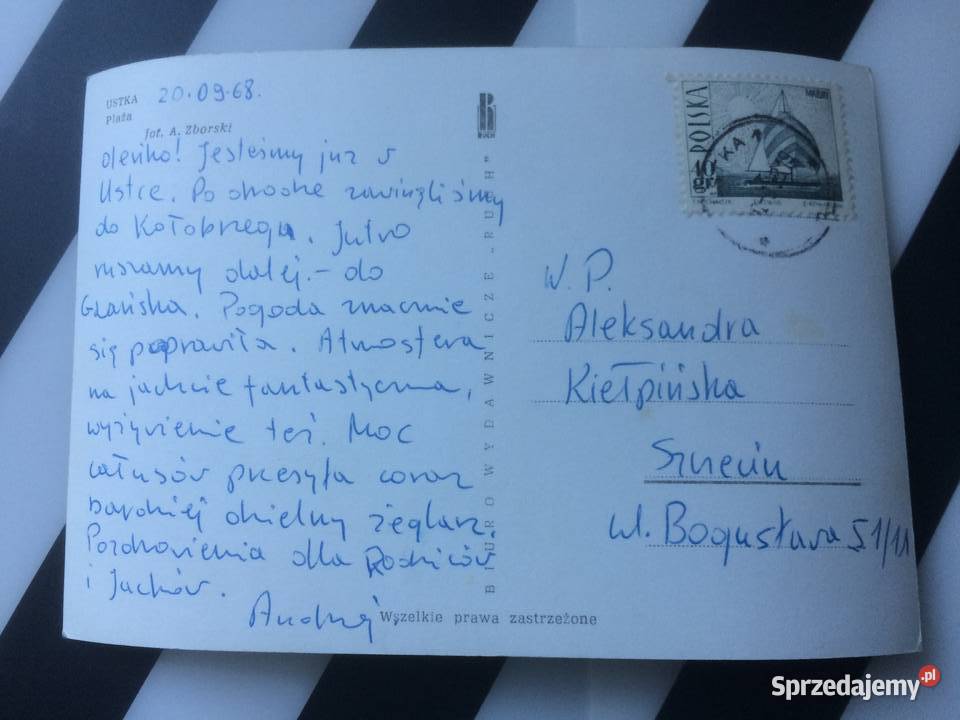 USTKA
Plaża
20.09.68.
Fot. A. Zborski
Oleńko! Jesteśmy już w
Ustce. Po drodze zawinęliśmy
do Kołobrzegu. Jutro
ruszamy dalej - do
Gdańska. Pogoda znacznie
się poprawiła. Atmosfera
na jachcie fantastyczna,
wyżywienie też. Moc
całusów przesyła coraz
bardziej dzielny żeglarz.
Pozdrowienia dla Rodziców
i
Andrzej
RUCH
BIURO WYDAWNICZE „RUCH"
Wszelkie prawa zastrzeżone
POLSKA
W. P.
Aleksandra
Kiełpińska
Szczecin
ul. Bogusława 51/11
Sprzedajemy.pl